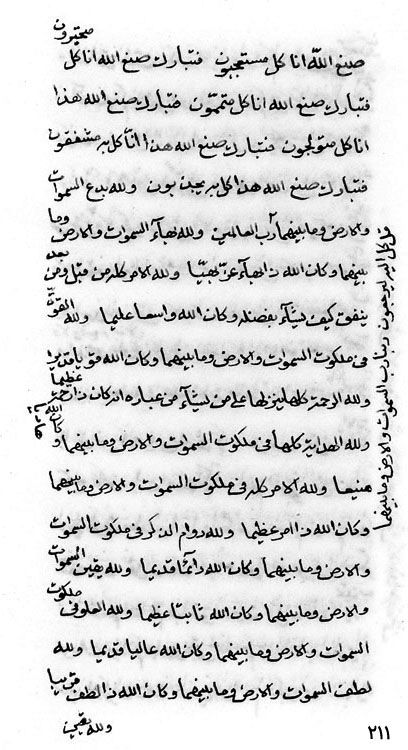 متحيرون
صنع الله انا كل مستعجبون فتبارك صنع الله انا كل
فتبارك صنع الله انا كل متممون فتبارك صنع الله هذا
انا كل فتبارك صنع الله هذا انا كل به مشفقون
فتبارك صنع الله هذا كل به ولله بدع السموات
والارض وما بينهما رب العالمين ولله بهاء السموات والارض وما
بينهما وكان الله ذا بهاء عز بهيا ولله الامر كله من قبل ومن بعد
ينفق كيف يشاء بفضله وكان الله واسعا عليما ولله القوة
فى ملكوت السموات والارض وما بينهما وكان الله قويا قديرا
ولله الرحمة كلها ينزلها على من يشاء من عباده انه كان ذا رحمة عظيما
ولله الهداية كلها فى ملكوت السموات والارض وما بينهما وكان الله هاديا
منيعا ولله الامر كله فى ملكوت السموات والارض وما بينهما
وكان الله ذا امر عظيما ولله دوام الذكر فى ملكوت السموات
والارض وما بينهما وكان الله دائما قديما ولله يقين السموات
والارض وما بينهما وكان الله ثابتا عظيما ولله العلو فى ملكوت
السموات والارض وما بينهما وكان الله عاليا قديما ولله
لطف السموات والارض وما بينهما وكان الله ذا لطف قريبا
ولله
قل كل اليه يرجعون رب السموات والارض وما بينهما
٢١١